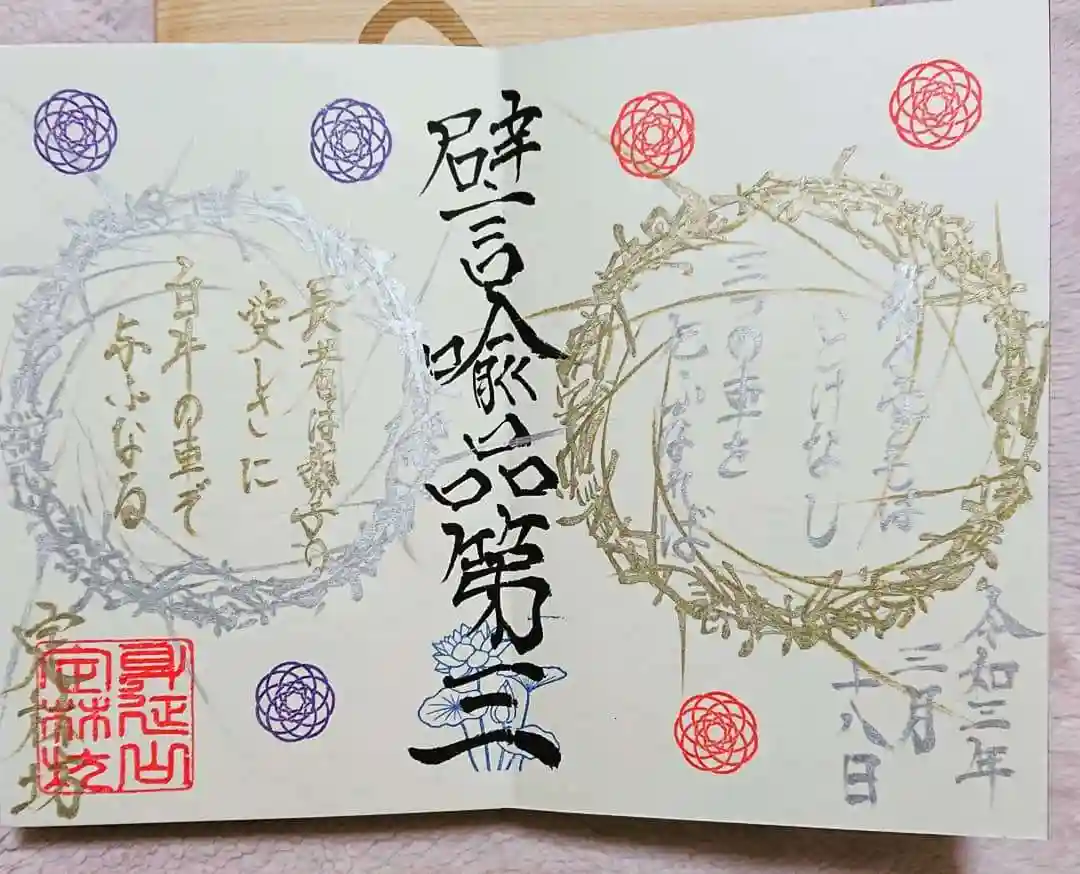 令和三年
三月
十八日
いとけなし
三つの車を
乞ふなれば
譬喩品第三
長者は 子の
愛しさに
白牛の車ぞ
与ふなる
定林坊
身延山
定林坊